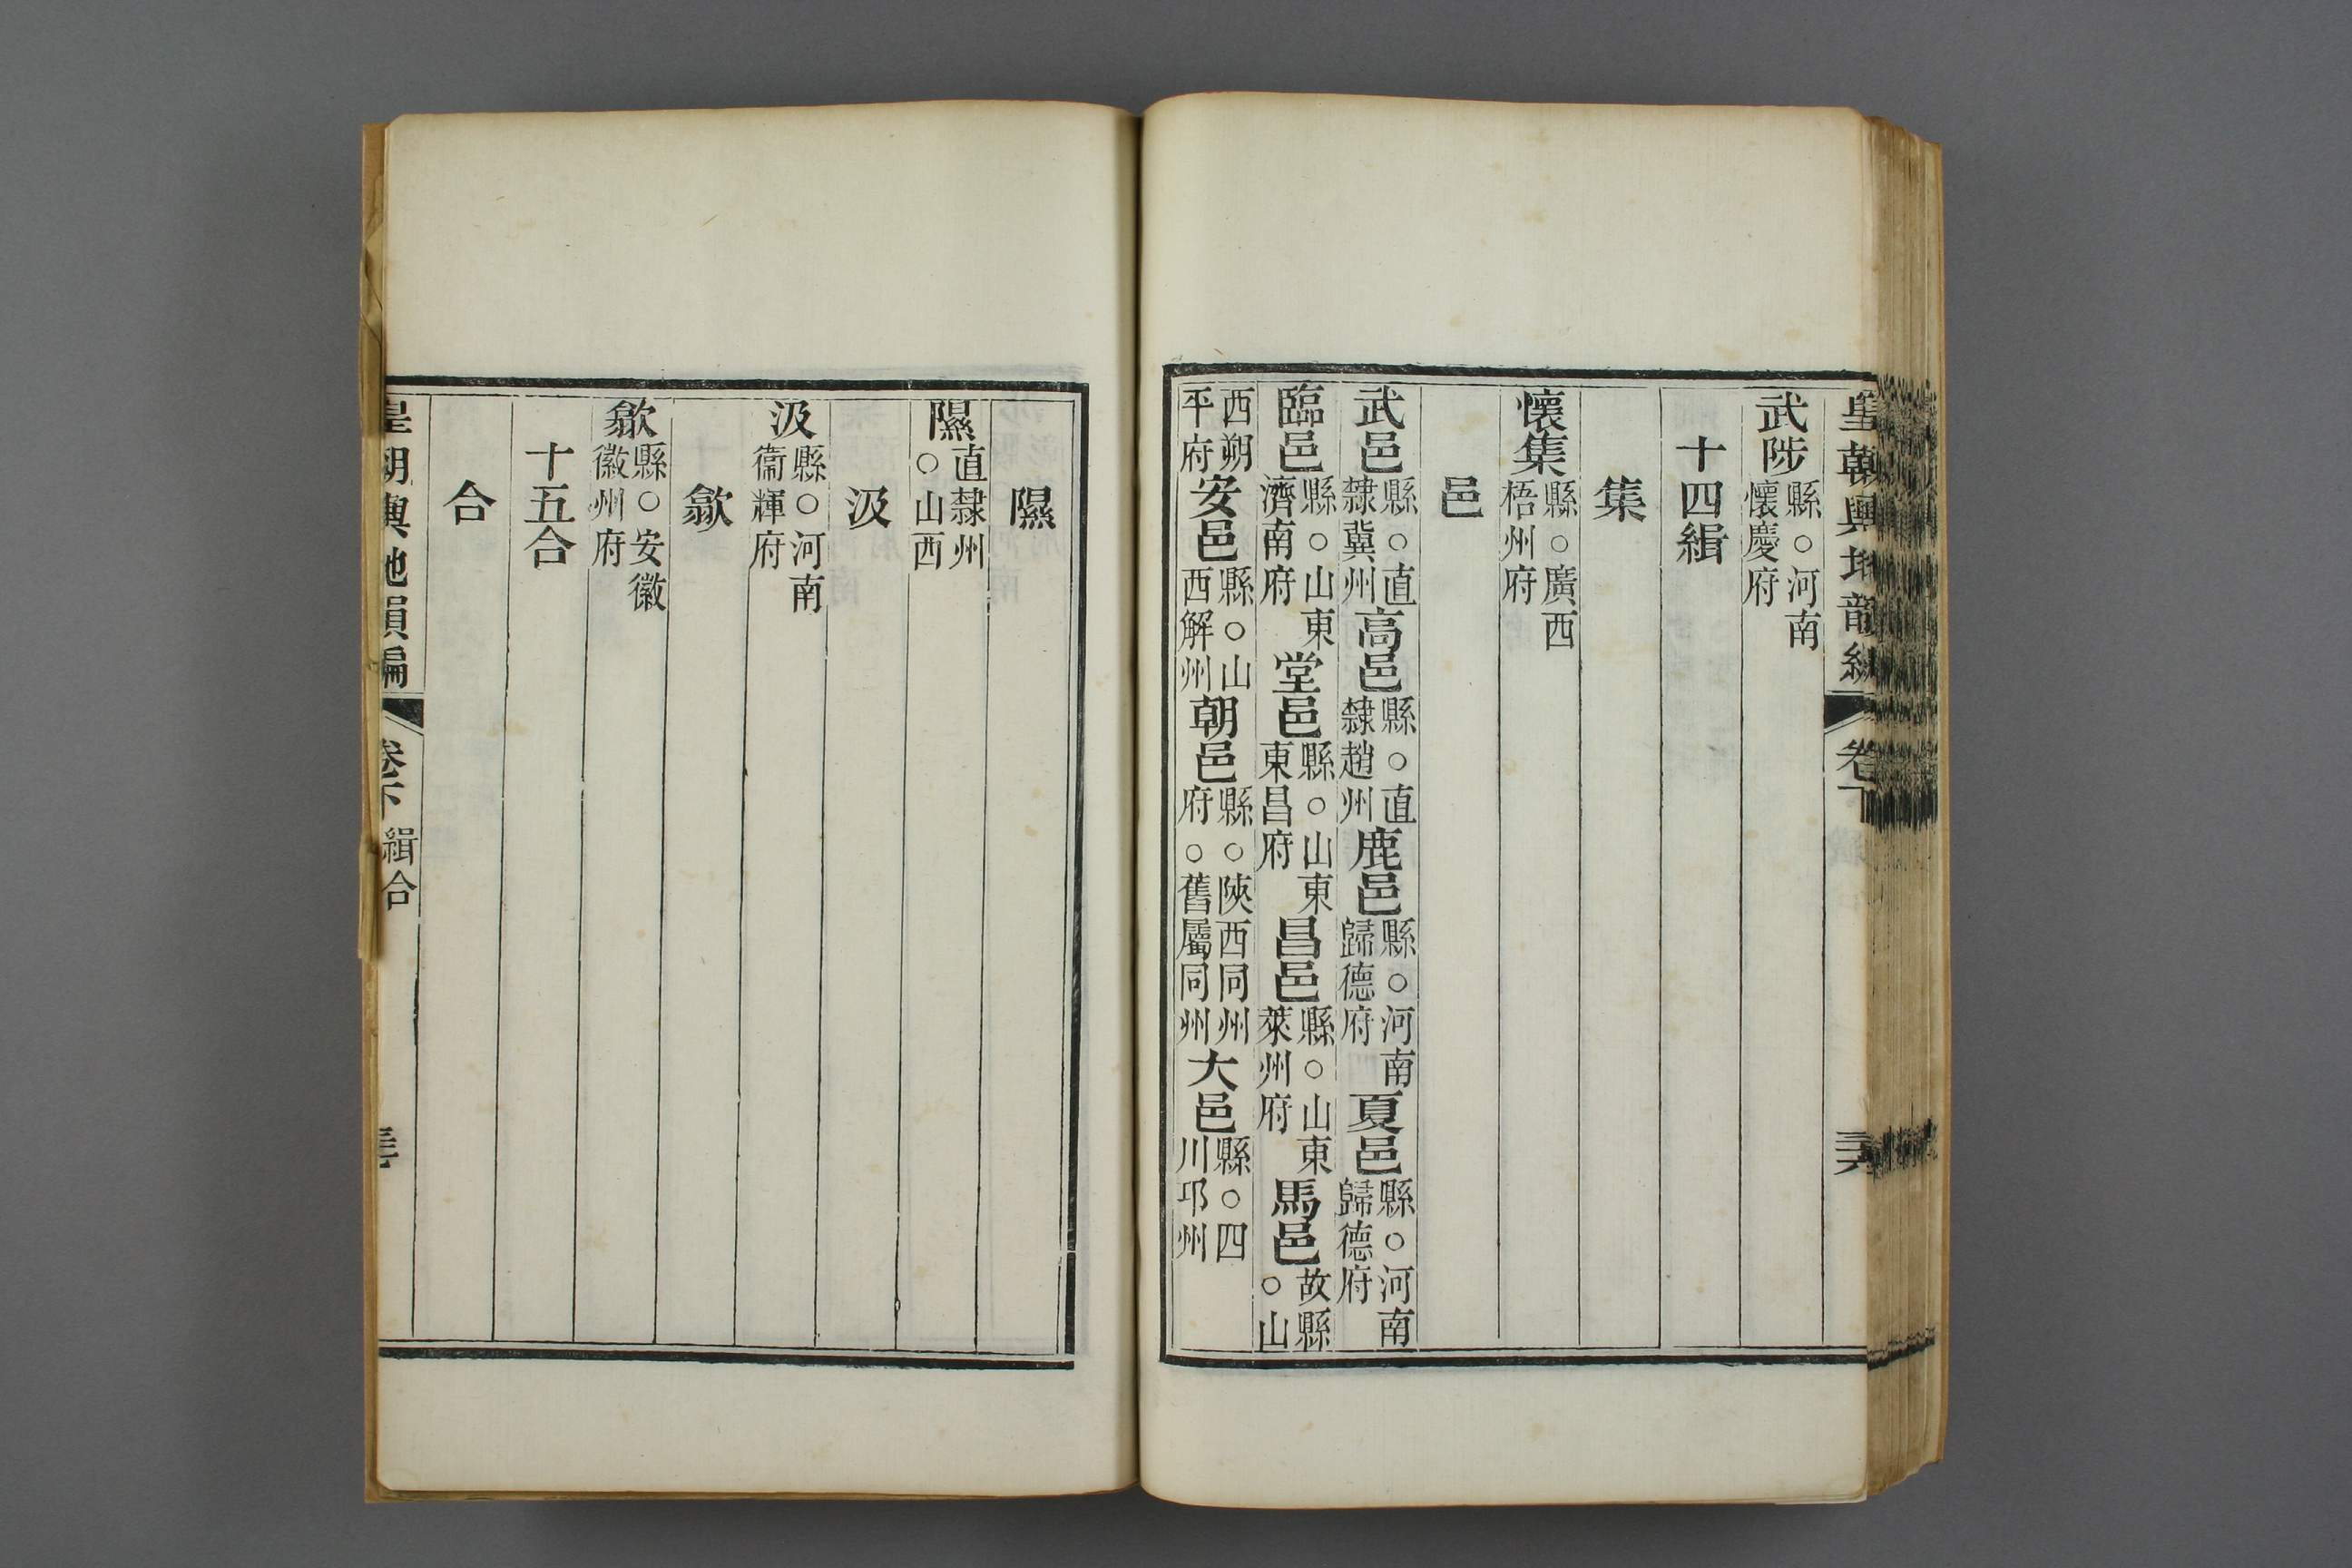 皇朝輿地韻編 卷下 三六
武陟縣○河南懷慶府
十四緝
集
懷集縣○廣西梧州府
邑
武邑縣○直隸冀州高邑縣○直隸趙州鹿邑縣○河南歸德府夏邑縣○河南歸德府
臨邑縣○山東濟南府堂邑縣○山東東昌府昌邑縣○山東萊州府馬邑故縣○山
西朔平府安邑縣○山西解州朝邑縣○陝西同州府○舊屬同州大邑縣○四川邛州
隰
隰直隸州○山西
汲
汲縣○河南衞輝府
歙
歙縣○安徽徽州府
十五合
合
皇朝輿地韻編 卷下 緝合